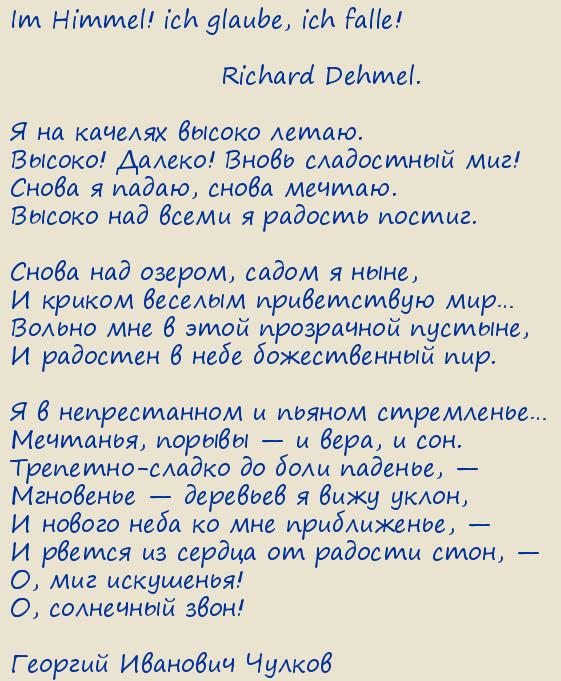 Im Himmel! ich glaube, ich falle!
Richard Dehmel.
Я на качелях высоко летаю.
Высоко! Далеко! Вновь сладостный миг!
Снова я падаю, снова мечтаю.
Высоко над всеми я радость постиг.
Снова над озером, садом я ныне,
И криком веселым приветствую мир...
Вольно мне в этой прозрачной пустыне,
И радостен в небе божественный пир.
Я в непрестанном и пьяном стремленье...
Мечтанья, порывы — и вера, и сон.
Трепетно-сладко до боли паденье, —
Мгновенье — деревьев я вижу уклон,
И нового неба ко мне приближенье, —
И рвется из сердца от радости стон, —
О, миг искушенья!
О, солнечный звон!
Георгий Иванович Чулков